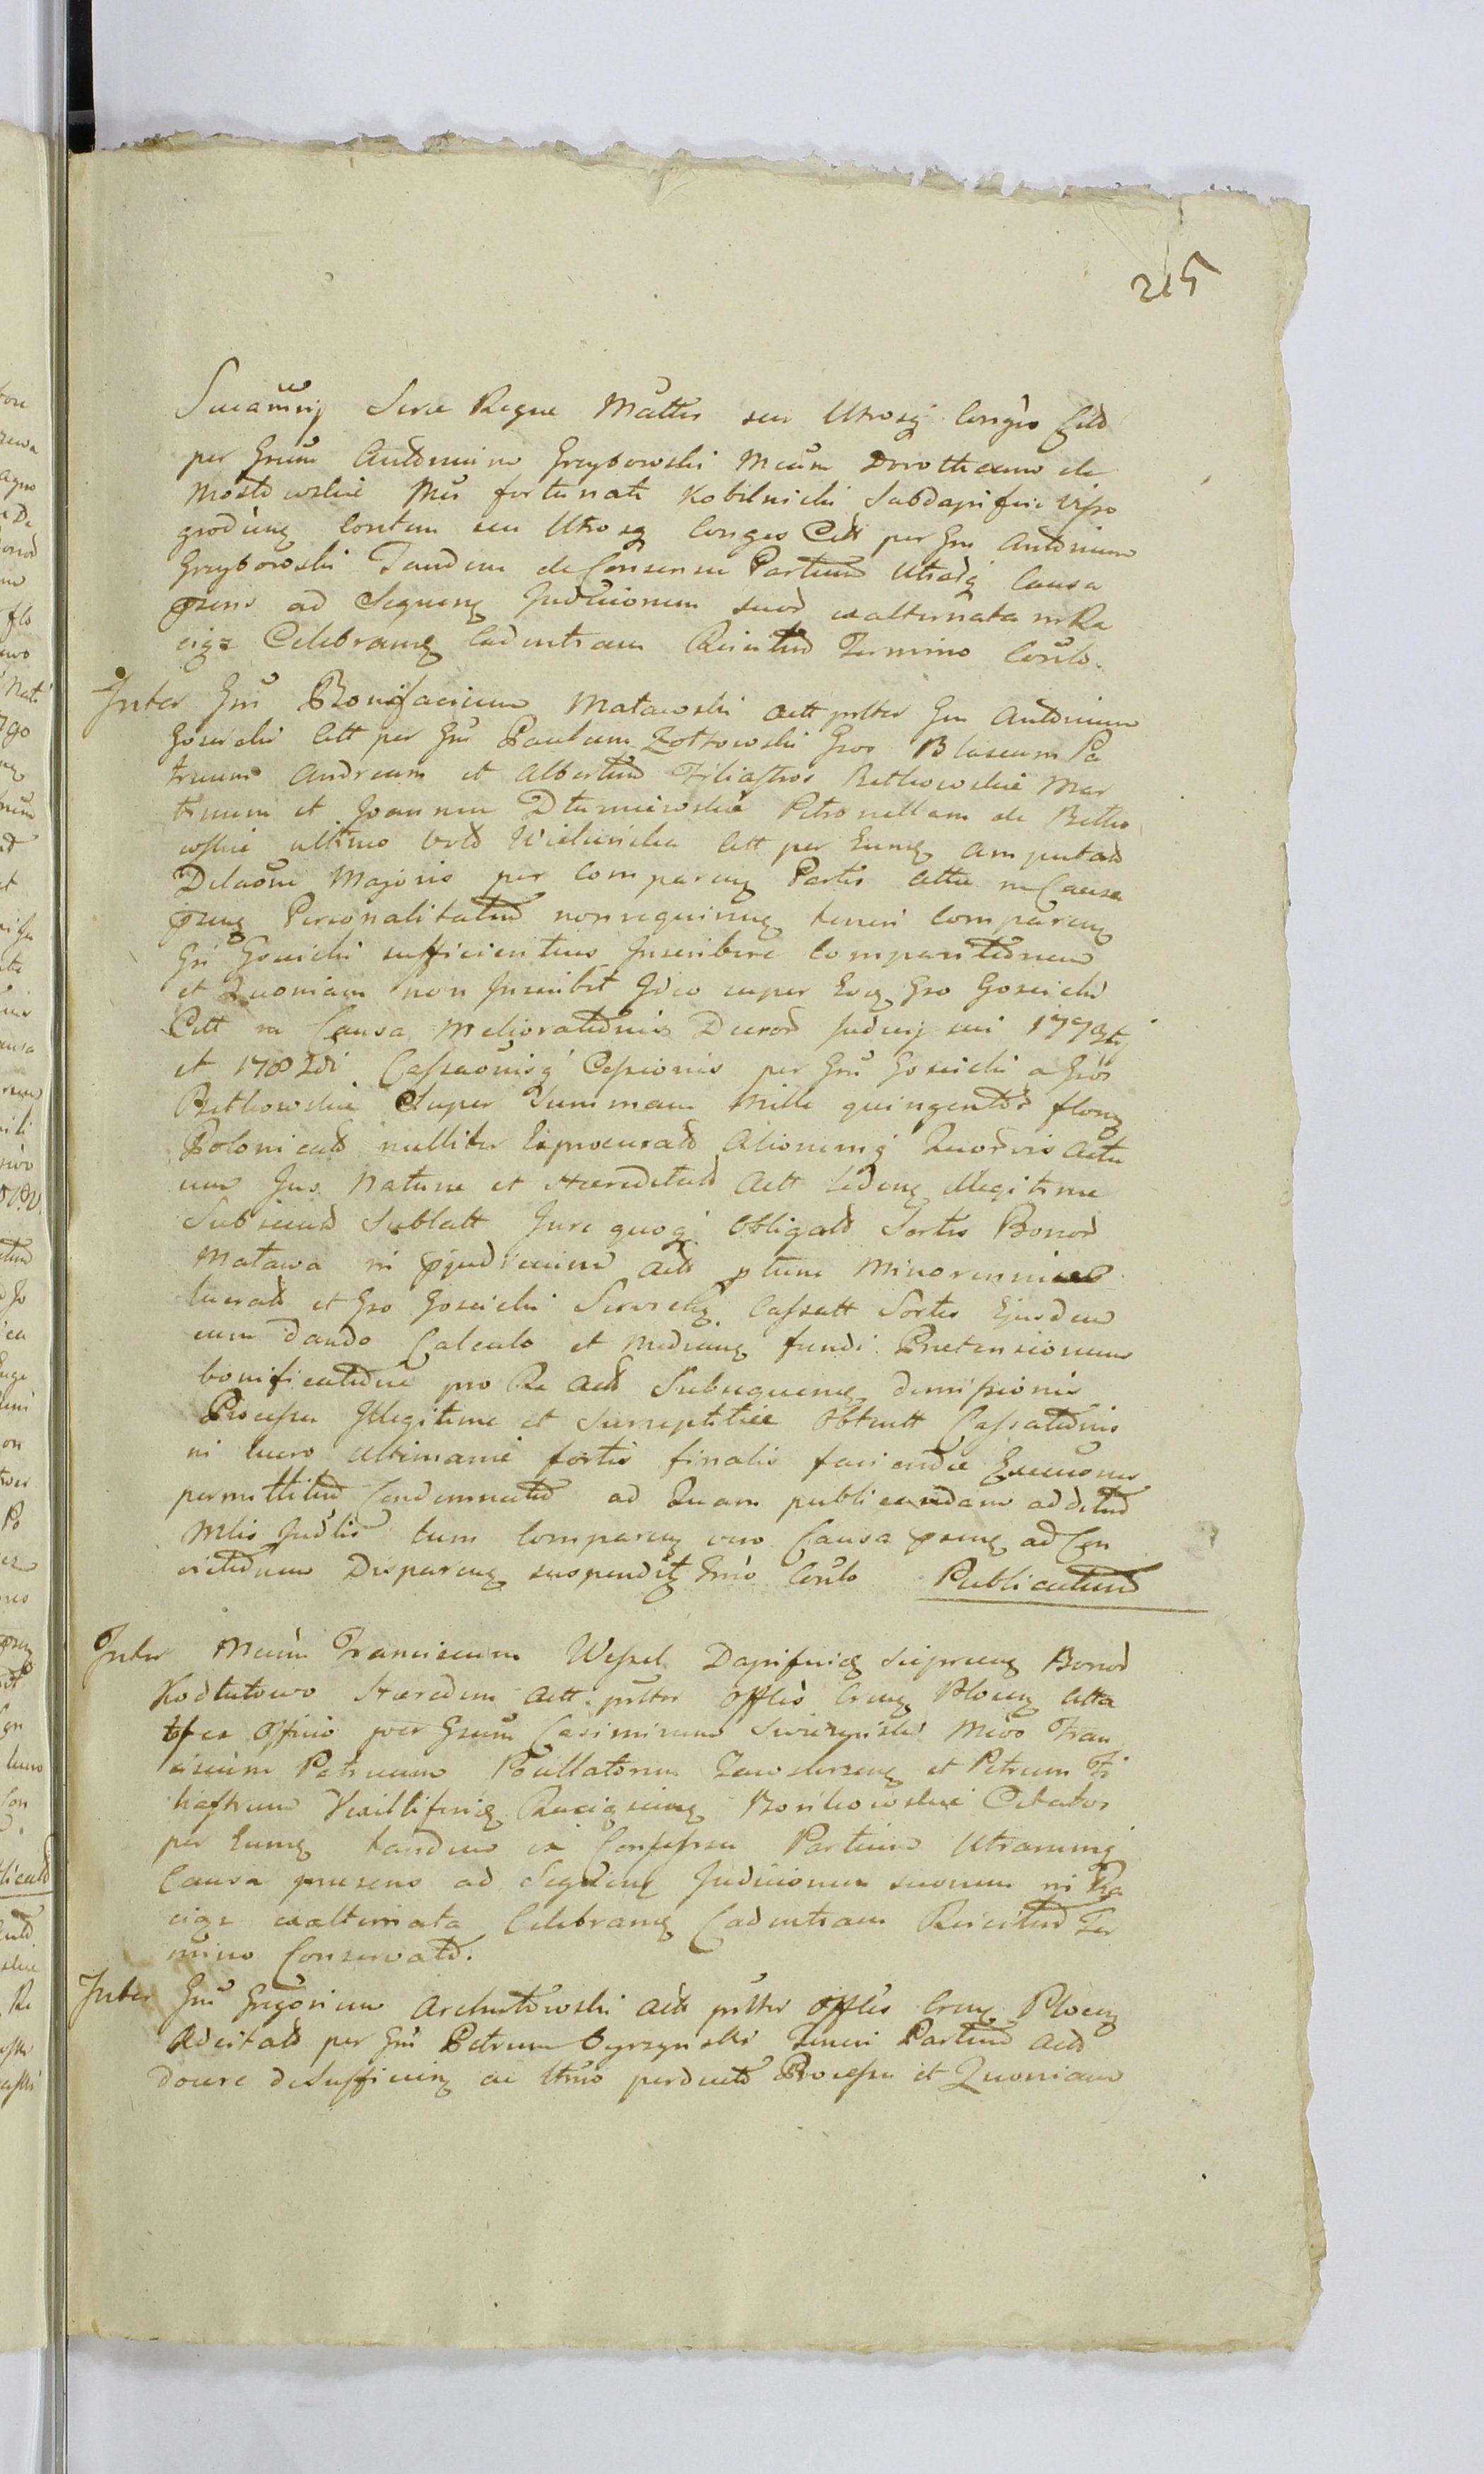 215
Sacræ Regiæ Mattis seu Utrosq Congis Citd
per Gnum Antonium Grzybowski Mcam Dorotheam de
Mostowskie Mci fortunati Kobilnicki Subdapiferi Viso
grodieng Contem seu Utrosq Conges Citt per Gnu Antonium
Grzybowski Tandem de Consensu Partium Utraq Causa
præns ad Sequeng Judiciorum suor exalternata in Ra
ciąż Celebrang Cadentiam Reicitur Termino Conslo.
Inter Gnu Bonifacium Matawski Actt prtter Gnu Antonium
Gosicki Citt per Gnu Paulum Zottowski Gnos Blaseum Pa
truum Andream et Albertum Filiastros Betkowskie Mar
tinum et Joannem Dłuniewskie Petronellam de Betko
wskie ultimo voto Wielunska Citt per Eumq amputatd
Dilaone Majoris per Compareng Partis Citta in Causa
præng Personalitatum non requireng teneri Compareng
Gni Gosicki sufficientius Inscribere Comparitionem
et Quoniam non Inscribit Ideo super Eoq Gso Gosicki
Citt in Causa Meliorationis Decror Judicy sui 1779tj
et 1782di Cassaonisq Cessionis per Gnu Gosicki a Gnos
Betkowskie Super Summam Mille quingentor floreng
Polonicatd nulliter Exprocuratd Aliorumq Quorvis Actu
um Jus Naturæ et Hæreditatd Actt Ledeng illegitime
Subsecutd Sublatt Jure quoq Obligatd Sortis Bonor
Matawa in præjudicium Actt ptunc Minorennis
lucratd et Gso Gosicki Cassatt Sortis Ejusdem
cum dando Calculo et Mediang fundi Prætensionum
bonificatione pro Re Actt Subsequeng dimissionis
Processu Illegitime et Surreptitie Obtentt Cassationis
in lucro Ultimariæ sortis finalis faciendæ Execuonis
permittitur Condemnatur ad Quam publicandam additur
Mtlis Judlis tum Compareng vero Causa præng ad Con
victionem Dispareng suspenditq Tmo Conslo Publicatum
Inter Mcum Franciscum Wessel Dapiferid Sierpceng Bonor
Kodłutowo Hæredem Actt prtter Offlis Creng Ploceng Citta
ex Officio per Gnum Casimirum Swierzynski Mcos Fran
ciscum Patruum Pocillatorem Zawskrzeng et Petrum Fi
liastrum Vexilliferid Raciążieng Bońkowskie Citatos
per Eumq tandem ex Consensu Partium Utrarumq
Causa præsens ad Seqteng Judiciorum suorum in Ra
ciąż exalternata Celebrang Cadentiam Reicitur Ter
mino Conservato.
Inter Gnu Gregorium Archutowski Actt prtter Offlis Creng Ploceng
Adcitatd per Gnu Petrum Teneri Partium Actt
docere de Sufficieng ac Utmo perductt Processu et Quoniam